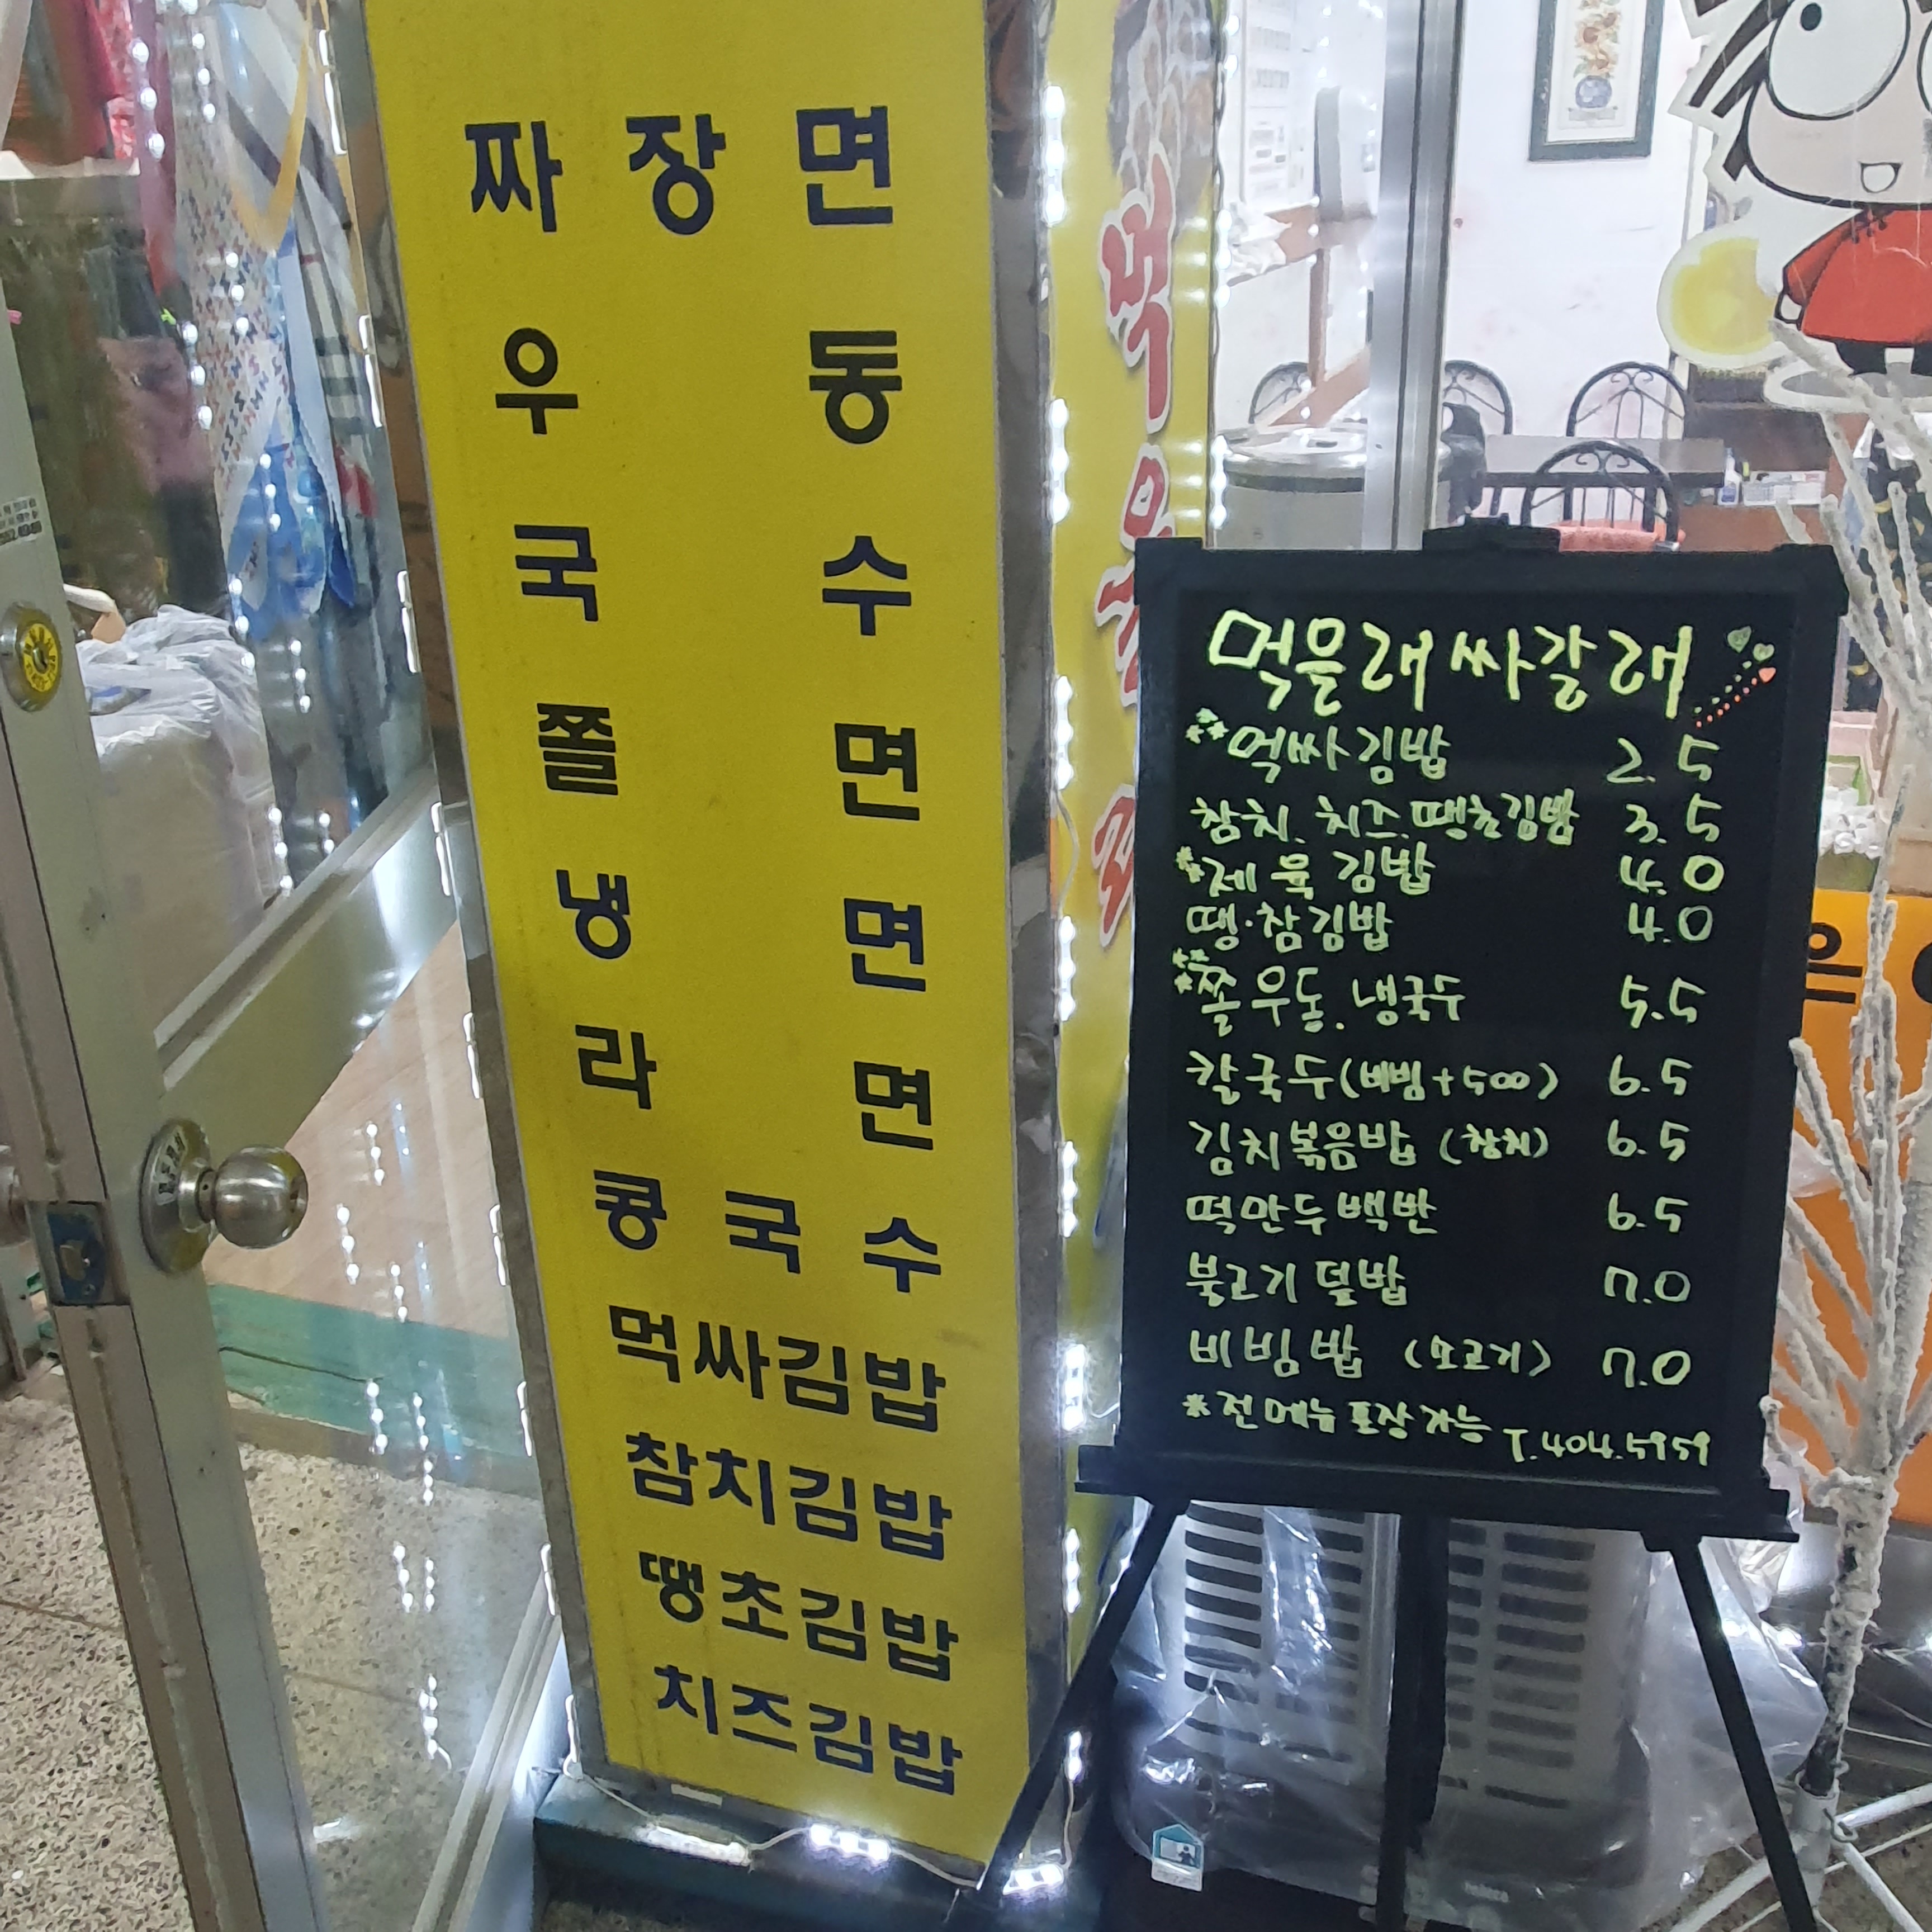 짜장면
우동
국수
쫄면
냉면
라면
콩국수
먹싸김밥
참치김밥
땡초김밥
치즈김밥
먹을래싸갈래
**먹싸김밥 2.5
참치. 치즈.땡초김밥 3.5
*제육김밥 4.0
땡·참김밥 4.0
**쫄우동.냉국수 5.5
칼국수(비빔+500) 6.5
김치볶음밥 (참치) 6.5
떡만두백반 6.5
불고기덮밥 7.0
비빔밥 (소고기) 7.0
*전메뉴포장가능 T.404.5959